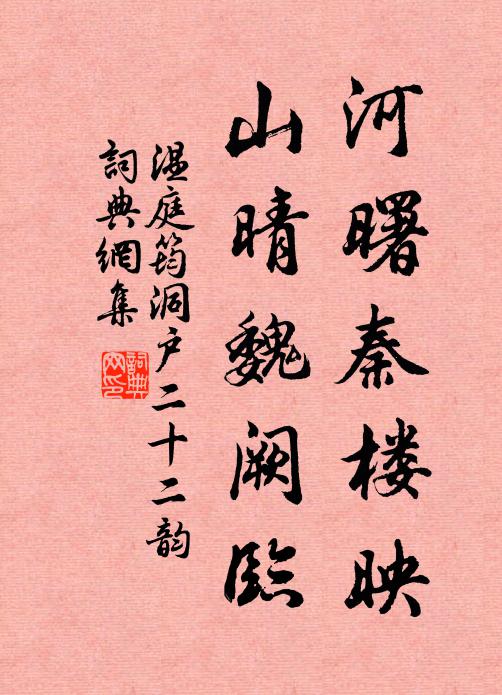 河曙秦楼映
山晴魏阙臨
温庭筠洞户二十二韵
詞典網集
詞典网印